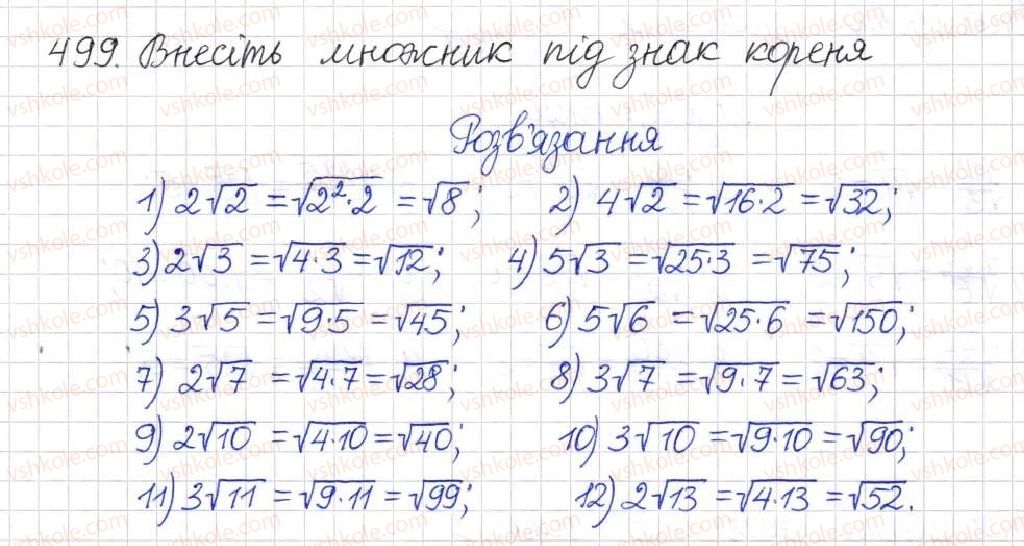 499. Внесіть множник під знак кореня
Розв'язання
1) 2√2 = √2²·2 = √8; 2) 4√2 = √16·2 = √32;
3) 2√3 = √4·3 = √12; 4) 5√3 = √25·3 = √75;
5) 3√5 = √9·5 = √45; 6) 5√6 = √25·6 = √150;
7) 2√7 = √4·7 = √28; 8) 3√7 = √9·7 = √63;
9) 2√10 = √4·10 = √40; 10) 3√10 = √9·10 = √90;
11) 3√11 = √9·11 = √99; 12) 2√13 = √4·13 = √52.